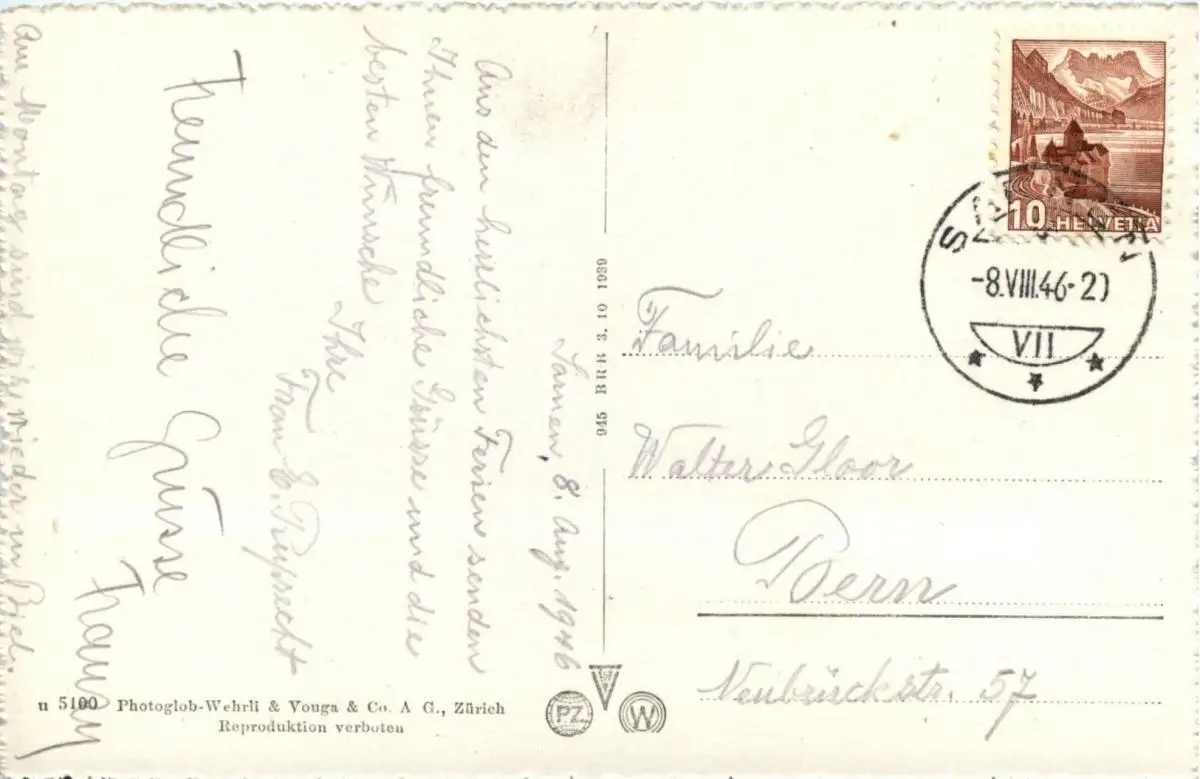 Sarnen, 8. Aug. 1946
Aus den herrlichsten Ferien senden
Ihnen freundliche Grüsse und die
besten Wünsche
Ihre
Frau E.
Freundliche Grüsse
Am Montag sind wir wieder in Biel.
945 BRB 3. 10 1939
10 HELVETIA
SARNEN
-8.VIII.46-20
VII
Familie
Walter Gloor
Bern
Neubrückstr. 57
u 5100 Photoglob-Wehrli & Vouga & Co. A G., Zürich
Reproduktion verboten
PZ
W